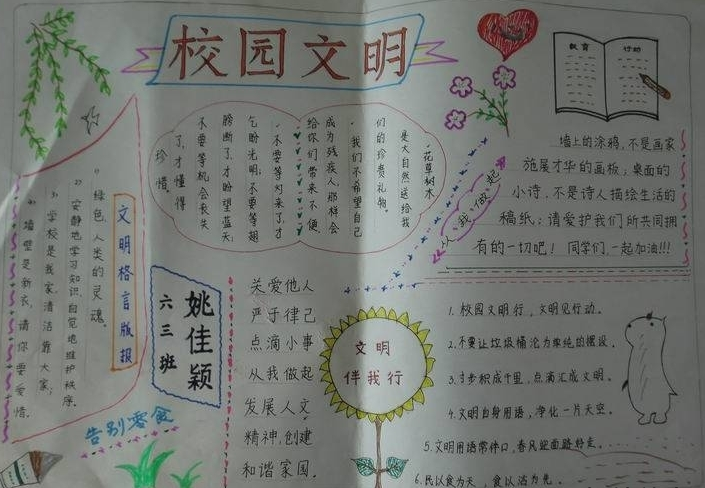 校园文明
教育
行动
墙上的涂鸦,不是画家
施展才华的画板;桌面的
小诗,不是诗人描绘生活的
稿纸;请爱护我们所共同拥
有的一切吧!同学们,一起加油!!!
从我做起
·花草树木
是大自然送给我
们的珍贵礼物。
·我们不希望自己
成为残疾人,那样会
给你们带来不便。
·不要等
了,才
乞盼光明,不要等翅
膀断了,才盼望蓝天,
不要等机会丧失
了,才懂得
珍惜。
文明格言版报
绿色,人类的灵魂。
安静地学习知识,自觉地维护秩序。
学校是我家,清洁靠大家。
墙壁是新衣,请你要爱惜。
告别零食
姚佳颖
六三班
关爱他人
严于律己
点滴小事
从我做起
发展人文
精神,创建
和谐家园。
文明
伴我行
1.校园文明行,文明见行动。
2.不要让垃圾桶沦为单纯的摆设。
3.寸步积成千里,点滴汇成文明。
4.文明自身用语,净化一片天空。
5.文明用语常伴口,春风迎面路好走。
6.民以食为天,食以洁为先。